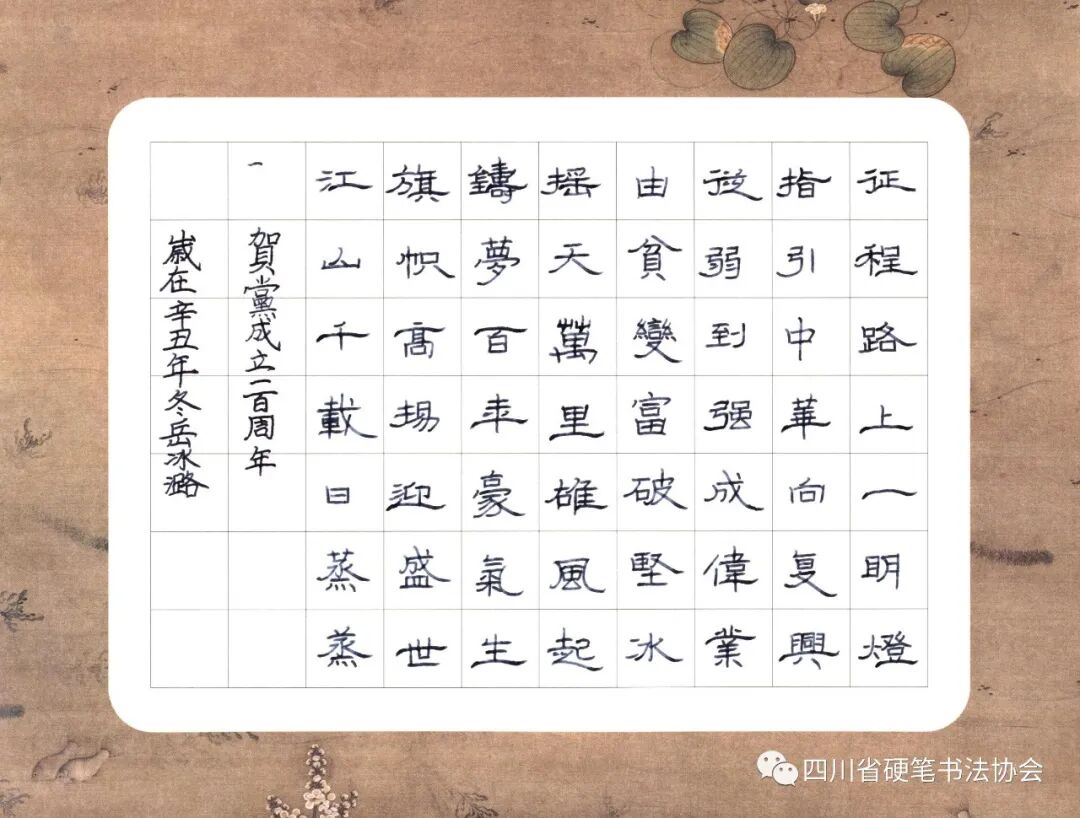 征程路上一明燈
指引中華向复興
從弱到强成偉業
由貧變富破堅冰
摇天萬里雄風起
鑄夢百年豪氣生
旗幟高揚迎盛世
江山千載日蒸蒸
一 賀黨成立一百周年
歲在辛丑年冬岳冰潞
四川省硬笔书法协会